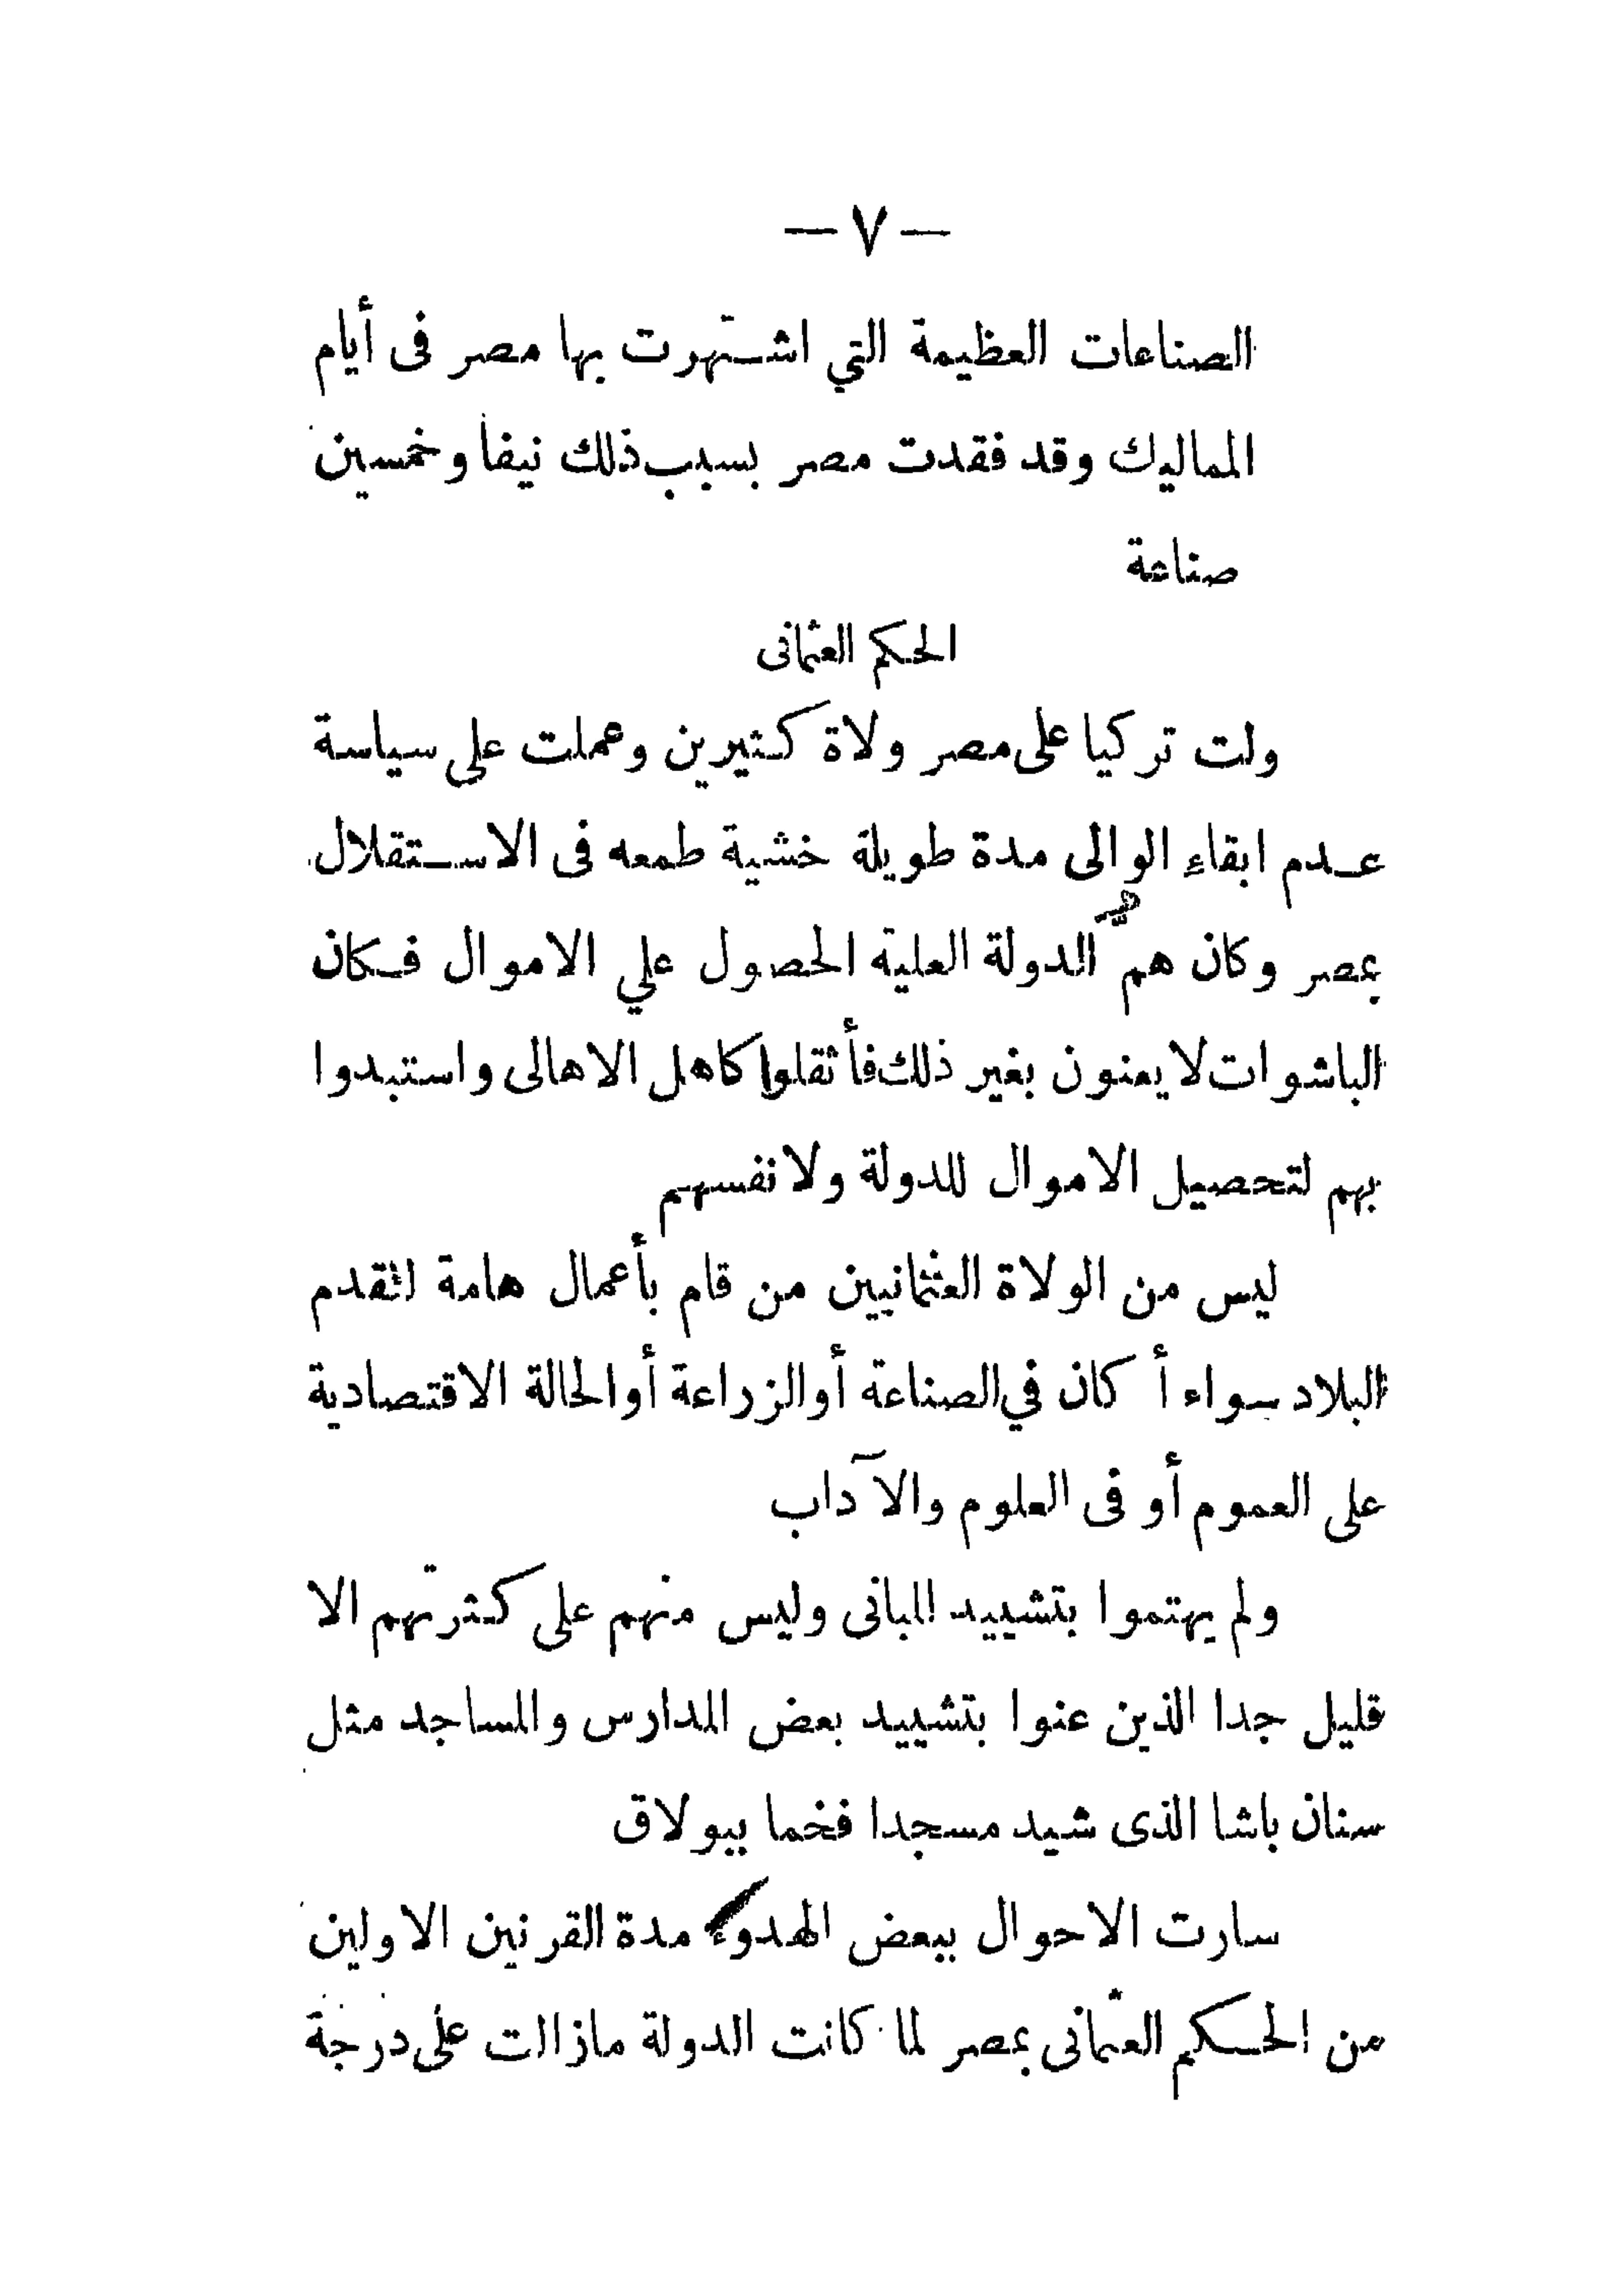 — ٧ —
الصناعات العظيمة التي اشتهرت بها مصر فى أيام
المماليك وقد فقدت مصر بسبب ذلك نيفا وخمسين
صناعة
الحكم العثمانى
ولت تركيا على مصر ولاة كثيرين وعملت على سياسة
عدم ابقاء الوالى مدة طويلة خشية طمعه فى الاستقلال
بمصر وكان همّ الدولة العلية الحصول علي الاموال فكان
الباشوات لا يعنون بغير ذلك فأثقلوا كاهل الاهالى واستبدوا
بهم لتحصيل الاموال للدولة ولانفسهم
ليس من الولاة العثمانيين من قام بأعمال هامة لتقدم
البلاد سواء أ كان في الصناعة أو الزراعة أو الحالة الاقتصادية
على العموم أو فى العلوم والآداب
ولم يهتموا بتشييد المبانى وليس منهم على كثرتهم الا
قليل جدا الذين عنوا بتشييد بعض المدارس والمساجد مثل
سنان باشا الذى شيد مسجدا فخما ببولاق
سارت الاحوال ببعض الهدوء مدة القرنين الاولين
من الحكم العثمانى بمصر لما كانت الدولة مازالت على درجة